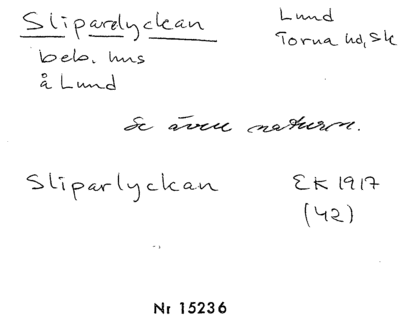 Slipardyckan Lund
Torna hd, Sk
beb. hus
å Lund
Se även naturn.
Sliparlyckan EK 1917
(42)
Nr 15236